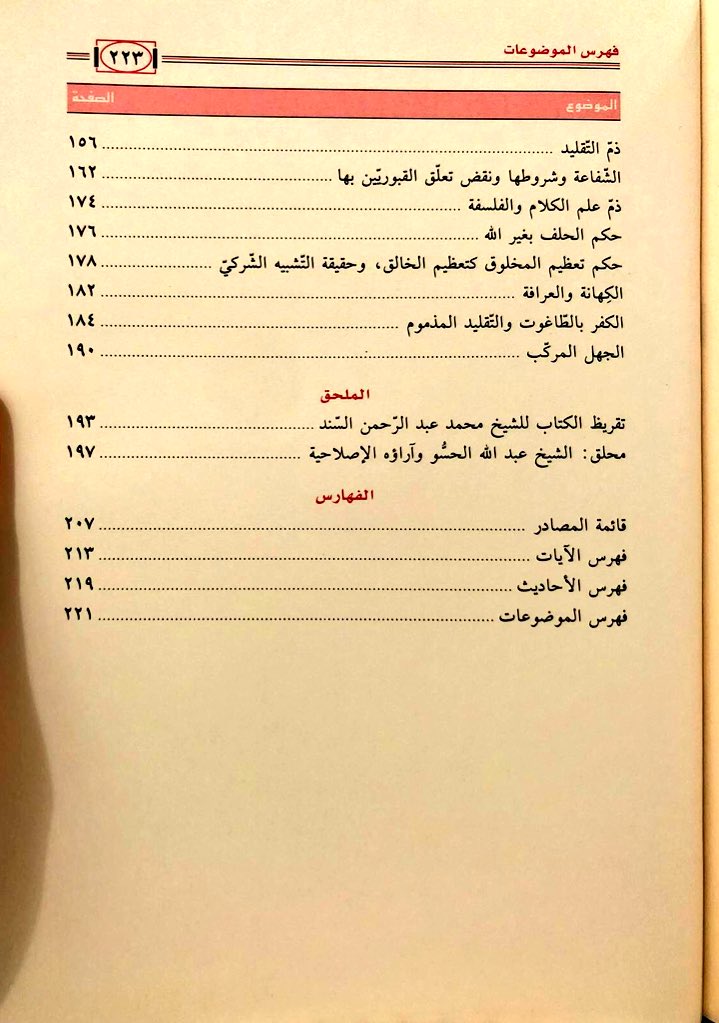 فهرس الموضوعات ٢٢٣
الموضوع الصفحة
ذمّ التّقليد ١٥٦
الشّفاعة وشروطها ونقض تعلّق القبوريّين بها ١٦٢
ذمّ علم الكلام والفلسفة ١٧٤
حكم الحلف بغير الله ١٧٦
حكم تعظيم المخلوق كتعظيم الخالق، وحقيقة التّشبيه الشّركيّ ١٧٨
الكِهانة والعرافة ١٨٢
الكفر بالطّاغوت والتّقليد المذموم ١٨٤
الجهل المركّب ١٩٠
الملحق
تقريظ الكتاب للشيخ محمد عبد الرّحمن السّند ١٩٣
محلق: الشيخ عبد الله الحسُّو وآراؤه الإصلاحية ١٩٧
الفهارس
قائمة المصادر ٢٠٧
فهرس الآيات ٢١٣
فهرس الأحاديث ٢١٩
فهرس الموضوعات ٢٢١